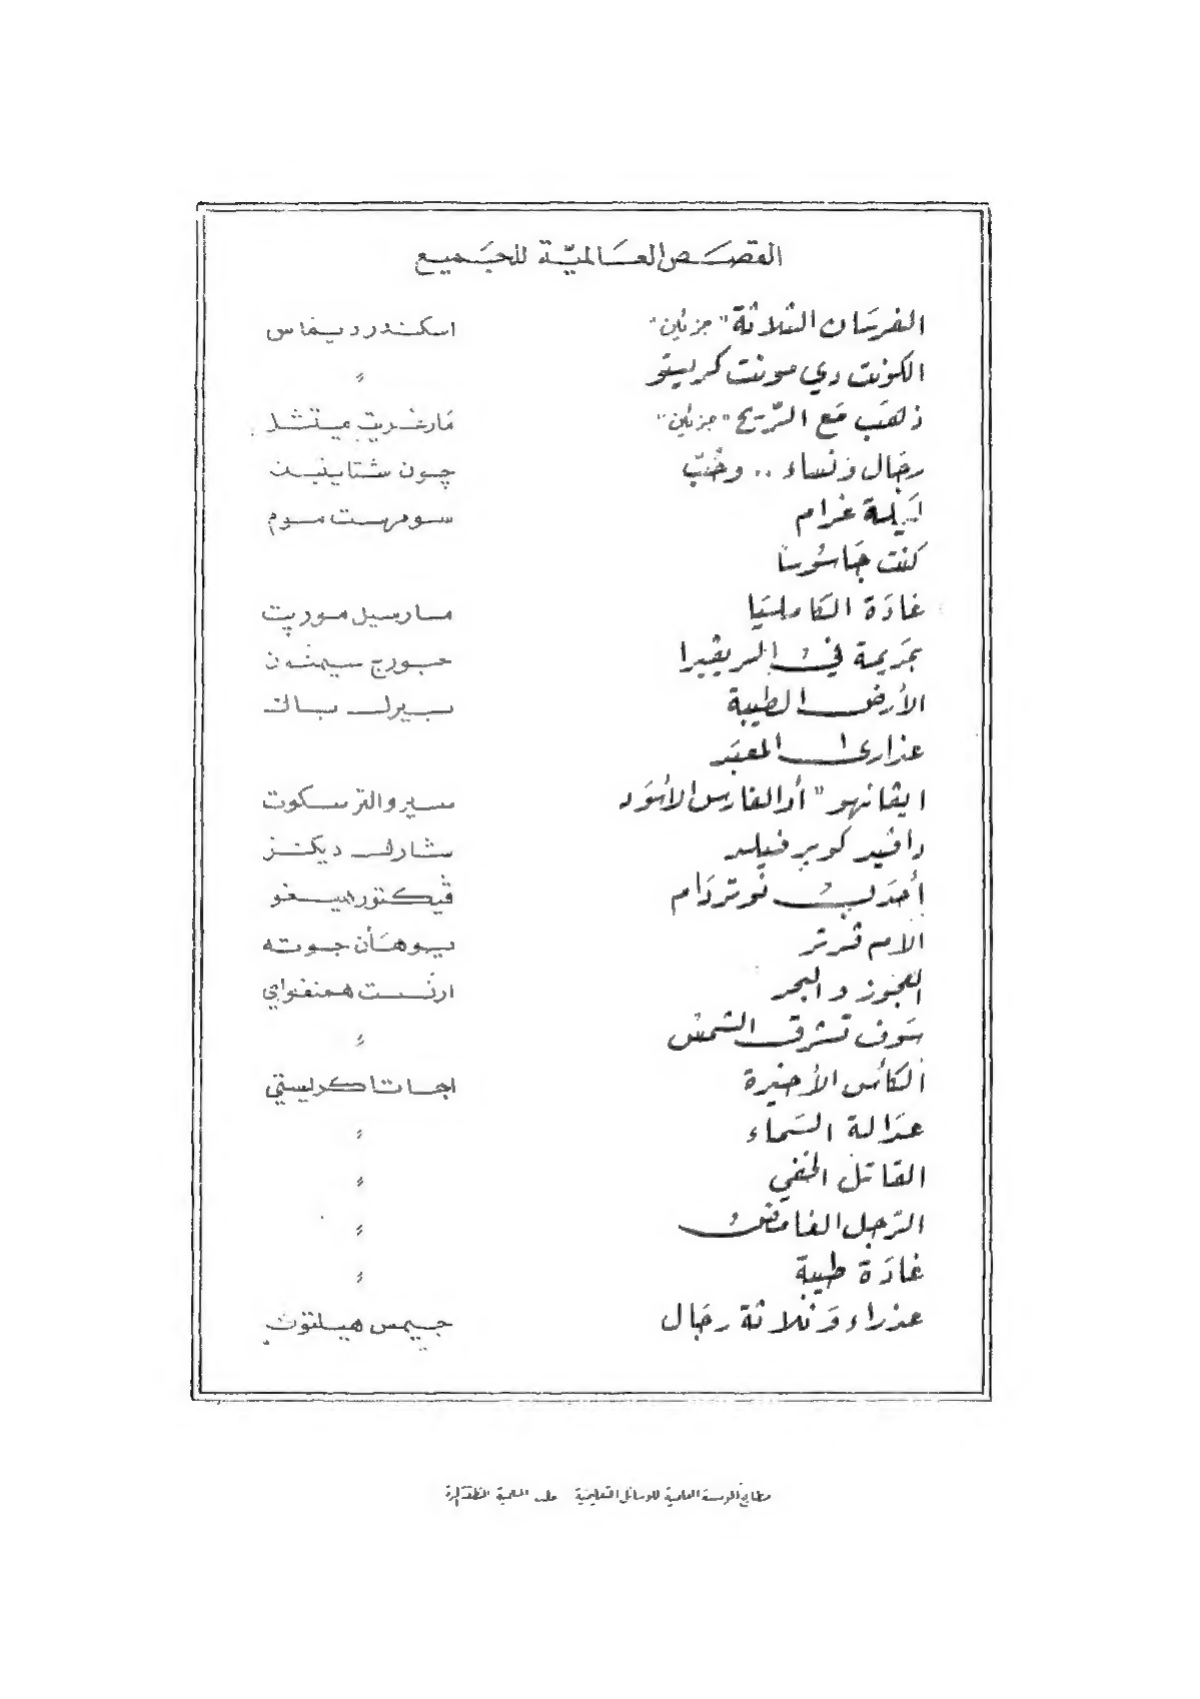 القصَص العَالميّة للجَميع
الفرسَان الثلاثة "جزئين" اسكندر ديماس
الكونت دي مونت كريستو "
ذهَب مَع الرّيح "جزئين" مَارغريت ميتشل
رجَال وَنساء .. وحُبّ چون شتاينبك
ليْلة غرام سومرست موم
كنت جَاسُوسا
غادَة الكامليَا مارسيل موريت
جَريمة في الريفييرا جورج سيمنون
الأرض الطيبة بيرل باك
عذارى المعبَد
ايڤانهو "أو الفارس الأسوَد سير والتر سكوت
داڤيد كوبر فيلد شارل ديكنز
أحدَب نوتردَام ڤيكتور هيغو
آلام ڤرتر يوهَان جوته
العجوز والبحر ارنست همنغواي
سَوف تشرق الشمس "
الكأس الأخيرة اجاتا كريستي
عدَالة السَماء "
القاتل الخفي "
الرّجل الغامض "
غادَة طيبة "
عذراء وَثلاثة رجَال جيمس هيلتون
مطابع المؤسسة العلمية للوسائل التعليمية حلب